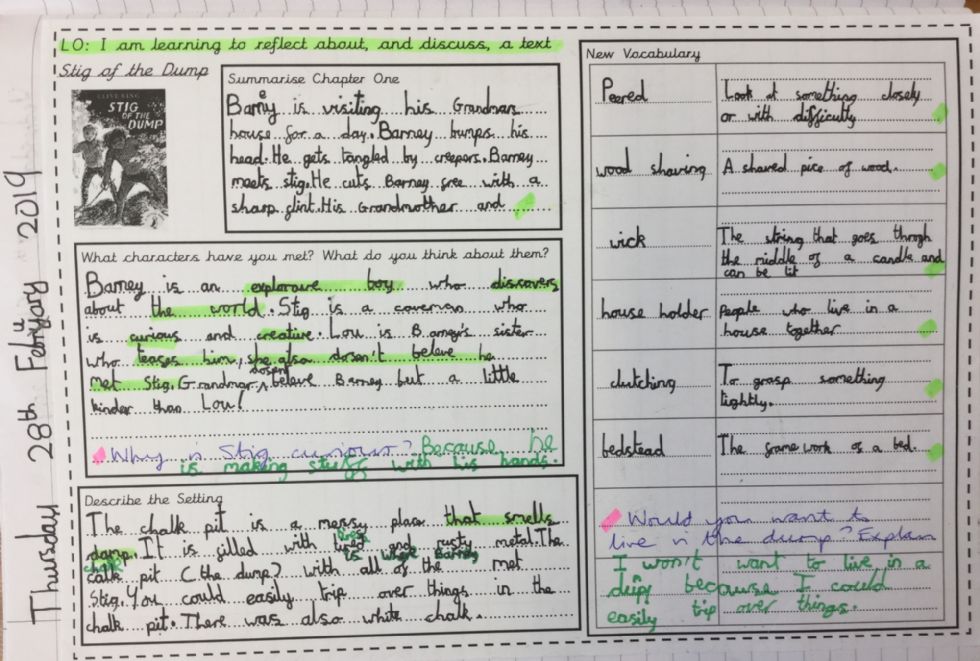 LO: I am learning to reflect about, and discuss, a text
Stig of the Dump
CLIVE KING
STIG
OF THE
DUMP
Summarise Chapter One
Barney is visiting his Grandmas
house for a day. Barney bumps his
head. He gets tangled by creepers. Barney
meets stig. He cuts Barney free with a
sharp flint. His Grandmother and
What characters have you met? What do you think about them?
Barney is an explorave boy who discovers
about the world. Stig is a caveman who
is curious and creative. Lou is Barney's sister
who teases him, she also dosen't beleve he
met Stig. Grandmar dosent beleve Barney but a little
kinder than Lou!
Why is Stig curious? Because he
is making stuff with his hands.
Describe the Setting
The chalk pit is a messy place that smells
damp. It is filled with tyres and rusty metal. The
chalk
calk pit (the dump?) with all of the is where Barney met
Stig. You could easily trip over things in the
chalk pit. There was also white chalk.
New Vocabulary
Peered
Look at something closely
or with difficulty
wood shaving
A shaved pice of wood.
wick
The string that goes throgh
the middle of a candle and
can be lit
house holder
People who live in a
house together
clutching
To grasp something
tightly.
bedstead
The frame work of a bed.
Would you want to
live in the dump? Explain
I won't want to live in a
dump because I could
easily trip over things.
Thursday 28th Febuary 2019